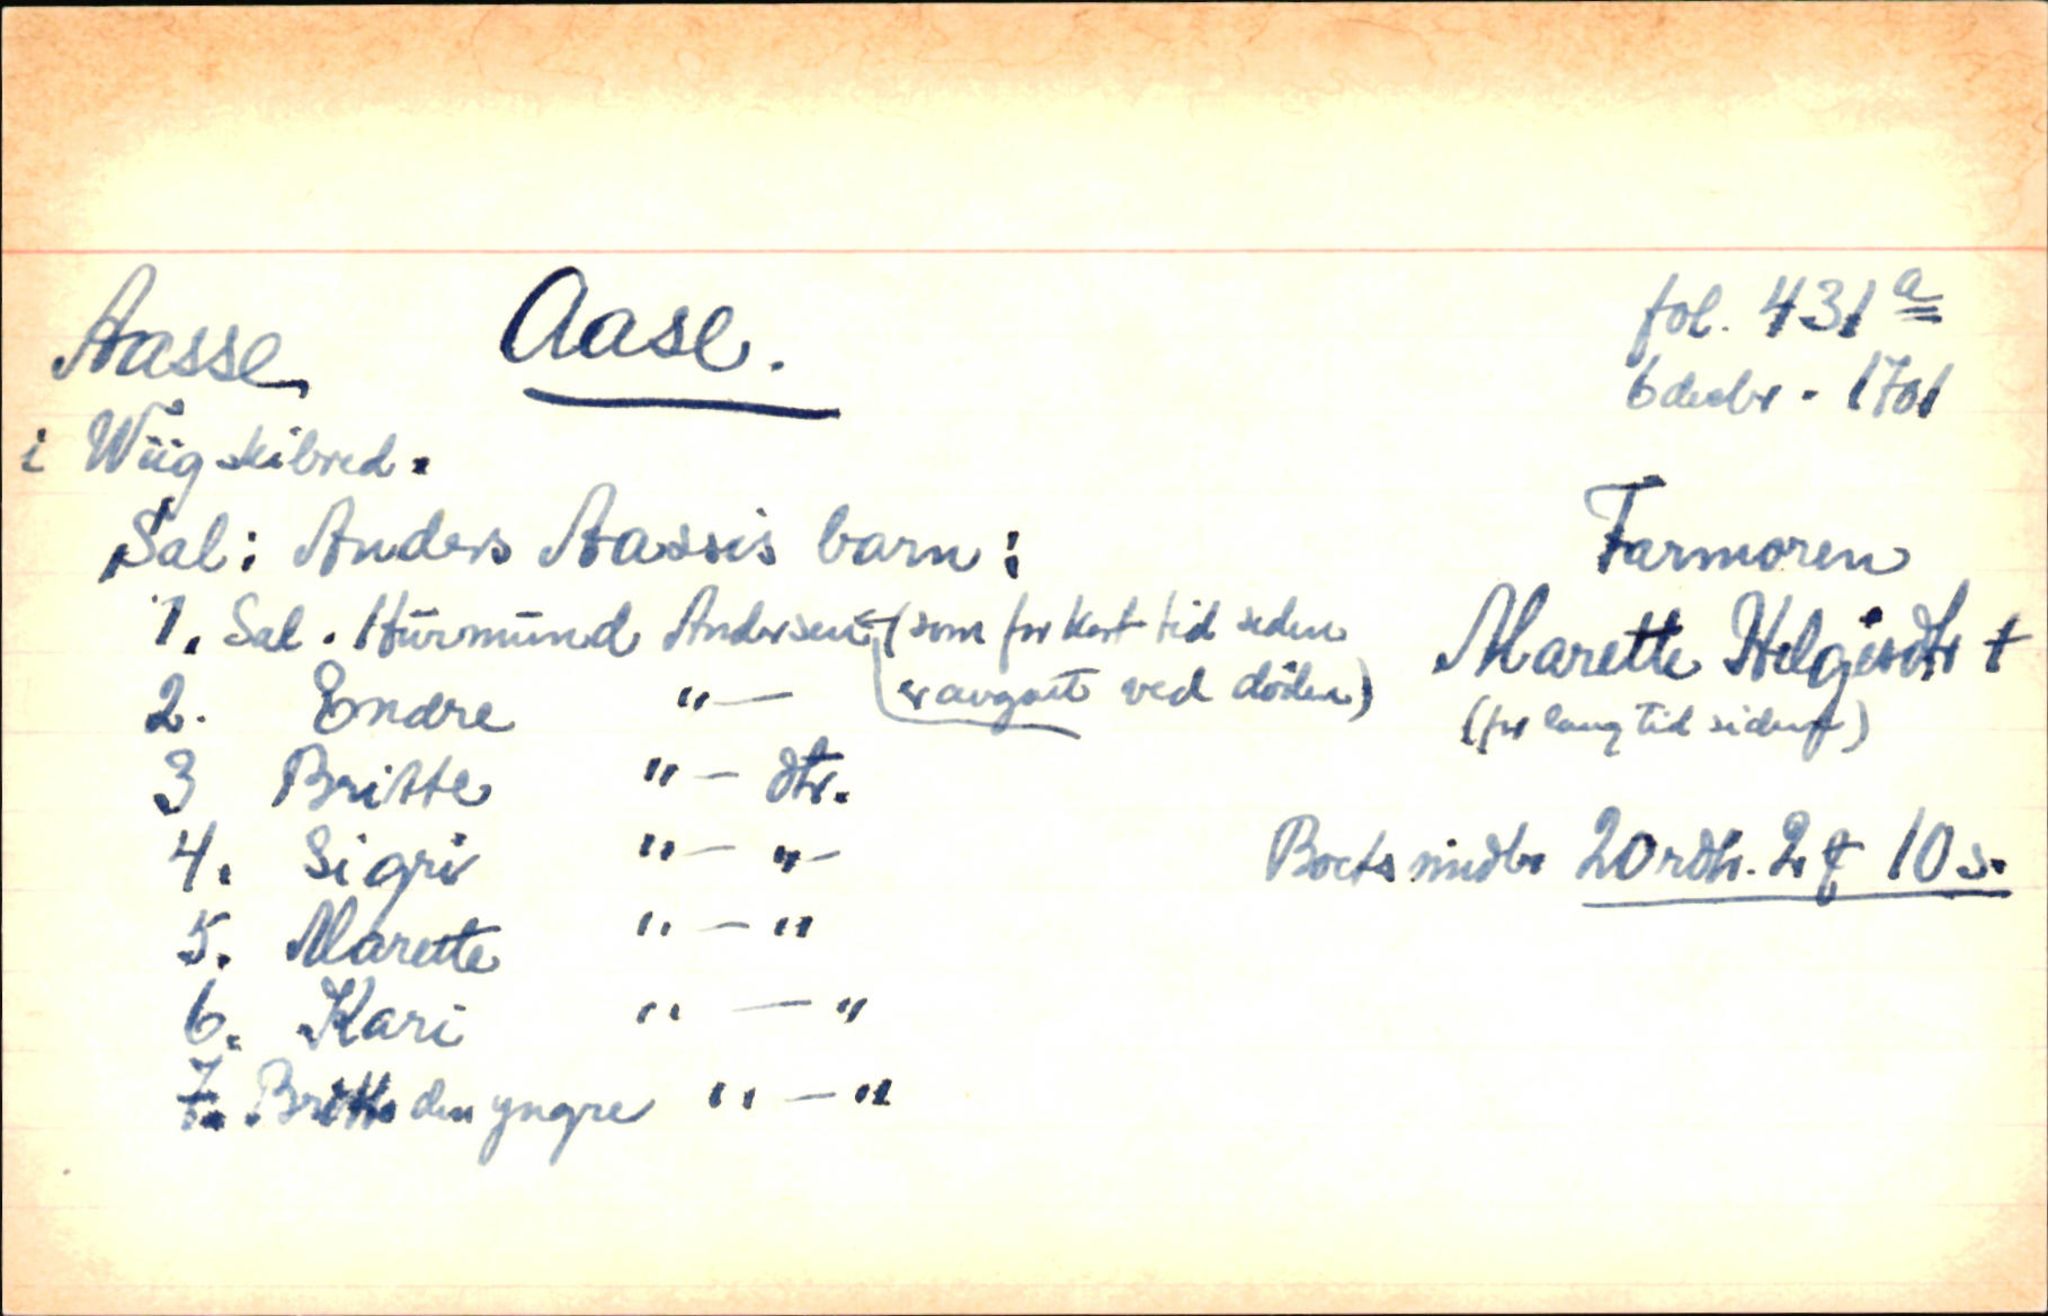 Aasse Aase. fol. 431 a
6 decbr. 1701
i Wiig skibred.
Sal: Anders Aassis barn:
Farmoren
1. Sal. Hŭrmŭnd Andersen (som for kort tid siden
er avgaat ved döden)
Marette Helgesdtr †
(for lang tid siden)
2. Endre "—
3 Britte "— dtr.
4. Sigri "— "—
Boets midler 20 rdlr. 2 ȶ 10 s.
5. Marette " — "
6. Kari " — "
7. Britte den yngre " — "